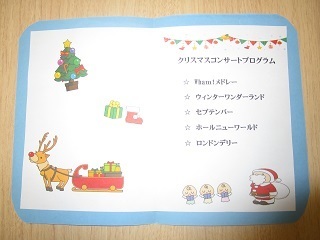 クリスマスコンサートプログラム
☆ Wham!メドレー
☆ ウィンターワンダーランド
☆ セプテンバー
☆ ホールニューワールド
☆ ロンドンデリー